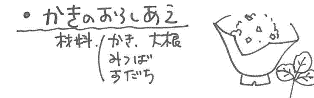 ・かきのおろしあえ
材料 ( かき、大根
みつば
すだち